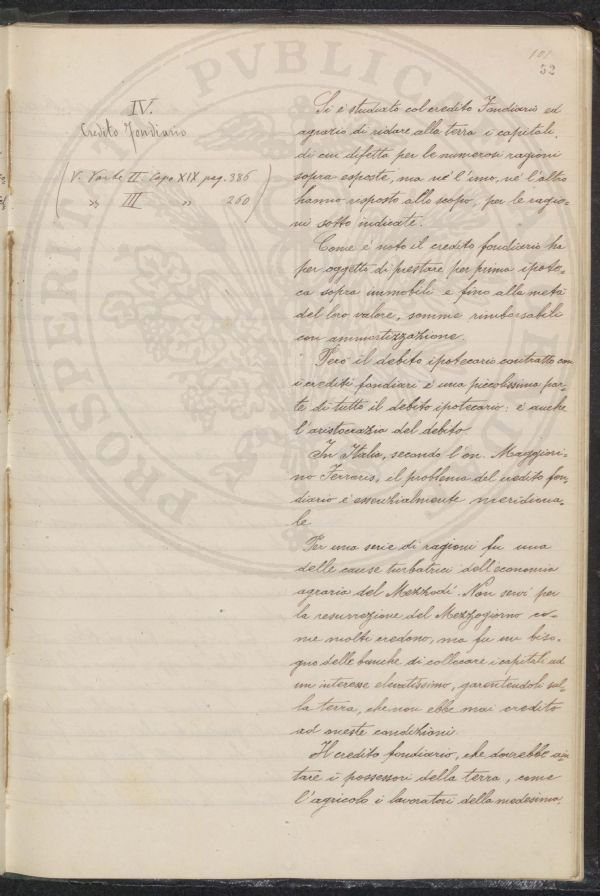 101
52
IV.
Credito Fondiario
(V. Parte II. Capo XIX pag. 385
" III " 260)
Si è studiato col credito Fondiario ed
agrario di ridare alla terra i capitali,
di cui difetta per le numerosi ragioni
sopra esposte, ma nè l'uno, nè l'altro
hanno risposto allo scopo, per le ragio=
ni sotto indicate.
Come è noto il credito fondiario ha
per oggetto di prestare per prima ipote=
ca sopra immobili e fino alla metà
del loro valore, somme rimborsabili
con ammortizzazione.
Però il debito ipotecario contratto con
i crediti fondiari è una piccolissima par=
te di tutto il debito ipotecario: è anche
l'aristocrazia del debito.
In Italia, secondo l'on. Maggiori=
no Ferraris, il problema del credito fon=
diario è essenzialmente meridiona=
le
Per una serie di ragioni fu una
delle cause turbatrici dell'economia
agraria del Mezzodì. Non servì per
la resurrezione del Mezzogiorno co=
me molti credono, ma fu un biso=
gno delle banche di collocare i capitali ad
un interesse elevatissimo, garentendoli sul=
la terra, che non ebbe mai credito
ad oneste condizioni.
Il credito fondiario, che dovrebbe aiu
tare i possessori della terra, come
l'agricolo i lavoratori della medesima,
PVBLICA
PROSPERI